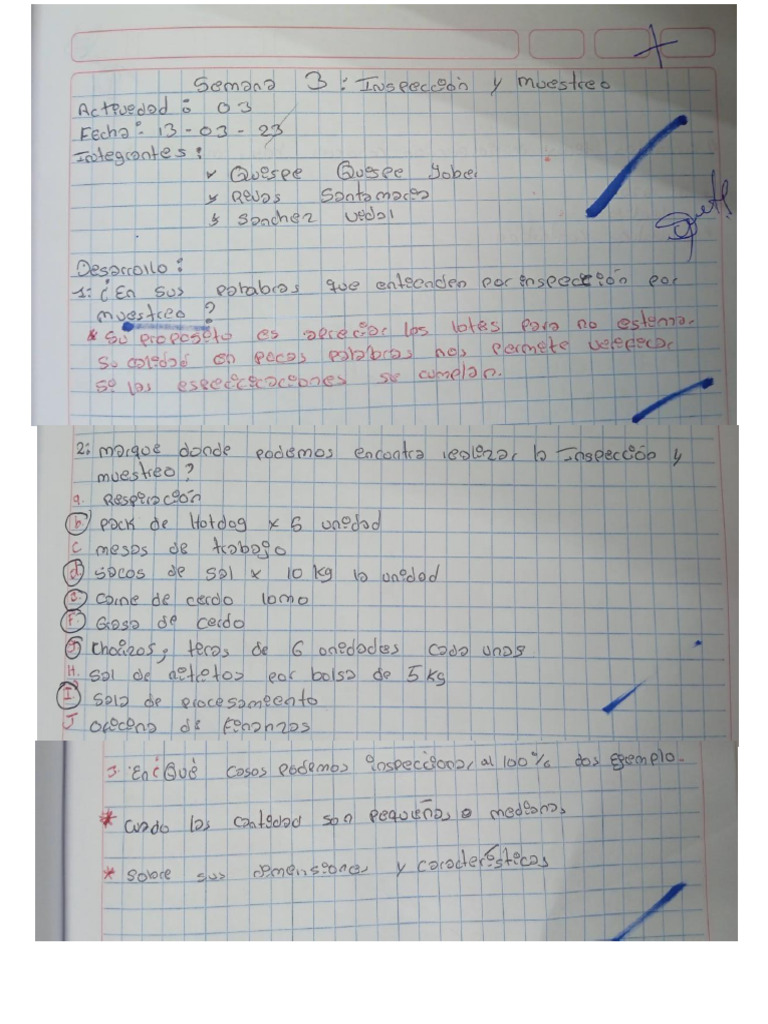 Semana 3: Inspección y muestreo
Actividad: 03
Fecha: 13-03-23
Integrantes:
Quespe Quespe Yober
Reuas Santamarea
Sanchez Vedal
Desarrollo:
1: ¿En sus palabras que enteenden por enspección por
muestreo?
* Su proposeto es apreciar los lotes para no estemar
su caledad en pocas palabras nos permete veredecar
Se las especececaceones se cumplan.
2: marque donde podemos encontra realezar la Inspección y
muestreo?
a. Respiración
b. pack de Hotdog x 5 unedad
c mesas de trabago
d. sacos de sal x 10 kg la unedad
e. Carne de cerdo lomo
F. Grasa de cerdo
g. chorizos, teras de 6 unedades cada unas
H. Sal de por bolsa de 5 kg
I sala de procesameento
J ofecena de fenanzas
3. En ¿Qué casos podemos enspeccionar al 100% dos egemplo.
* Cuado las cantedad son pequeñas o medeanas
* Sobre sus demenseones y caracterestecas